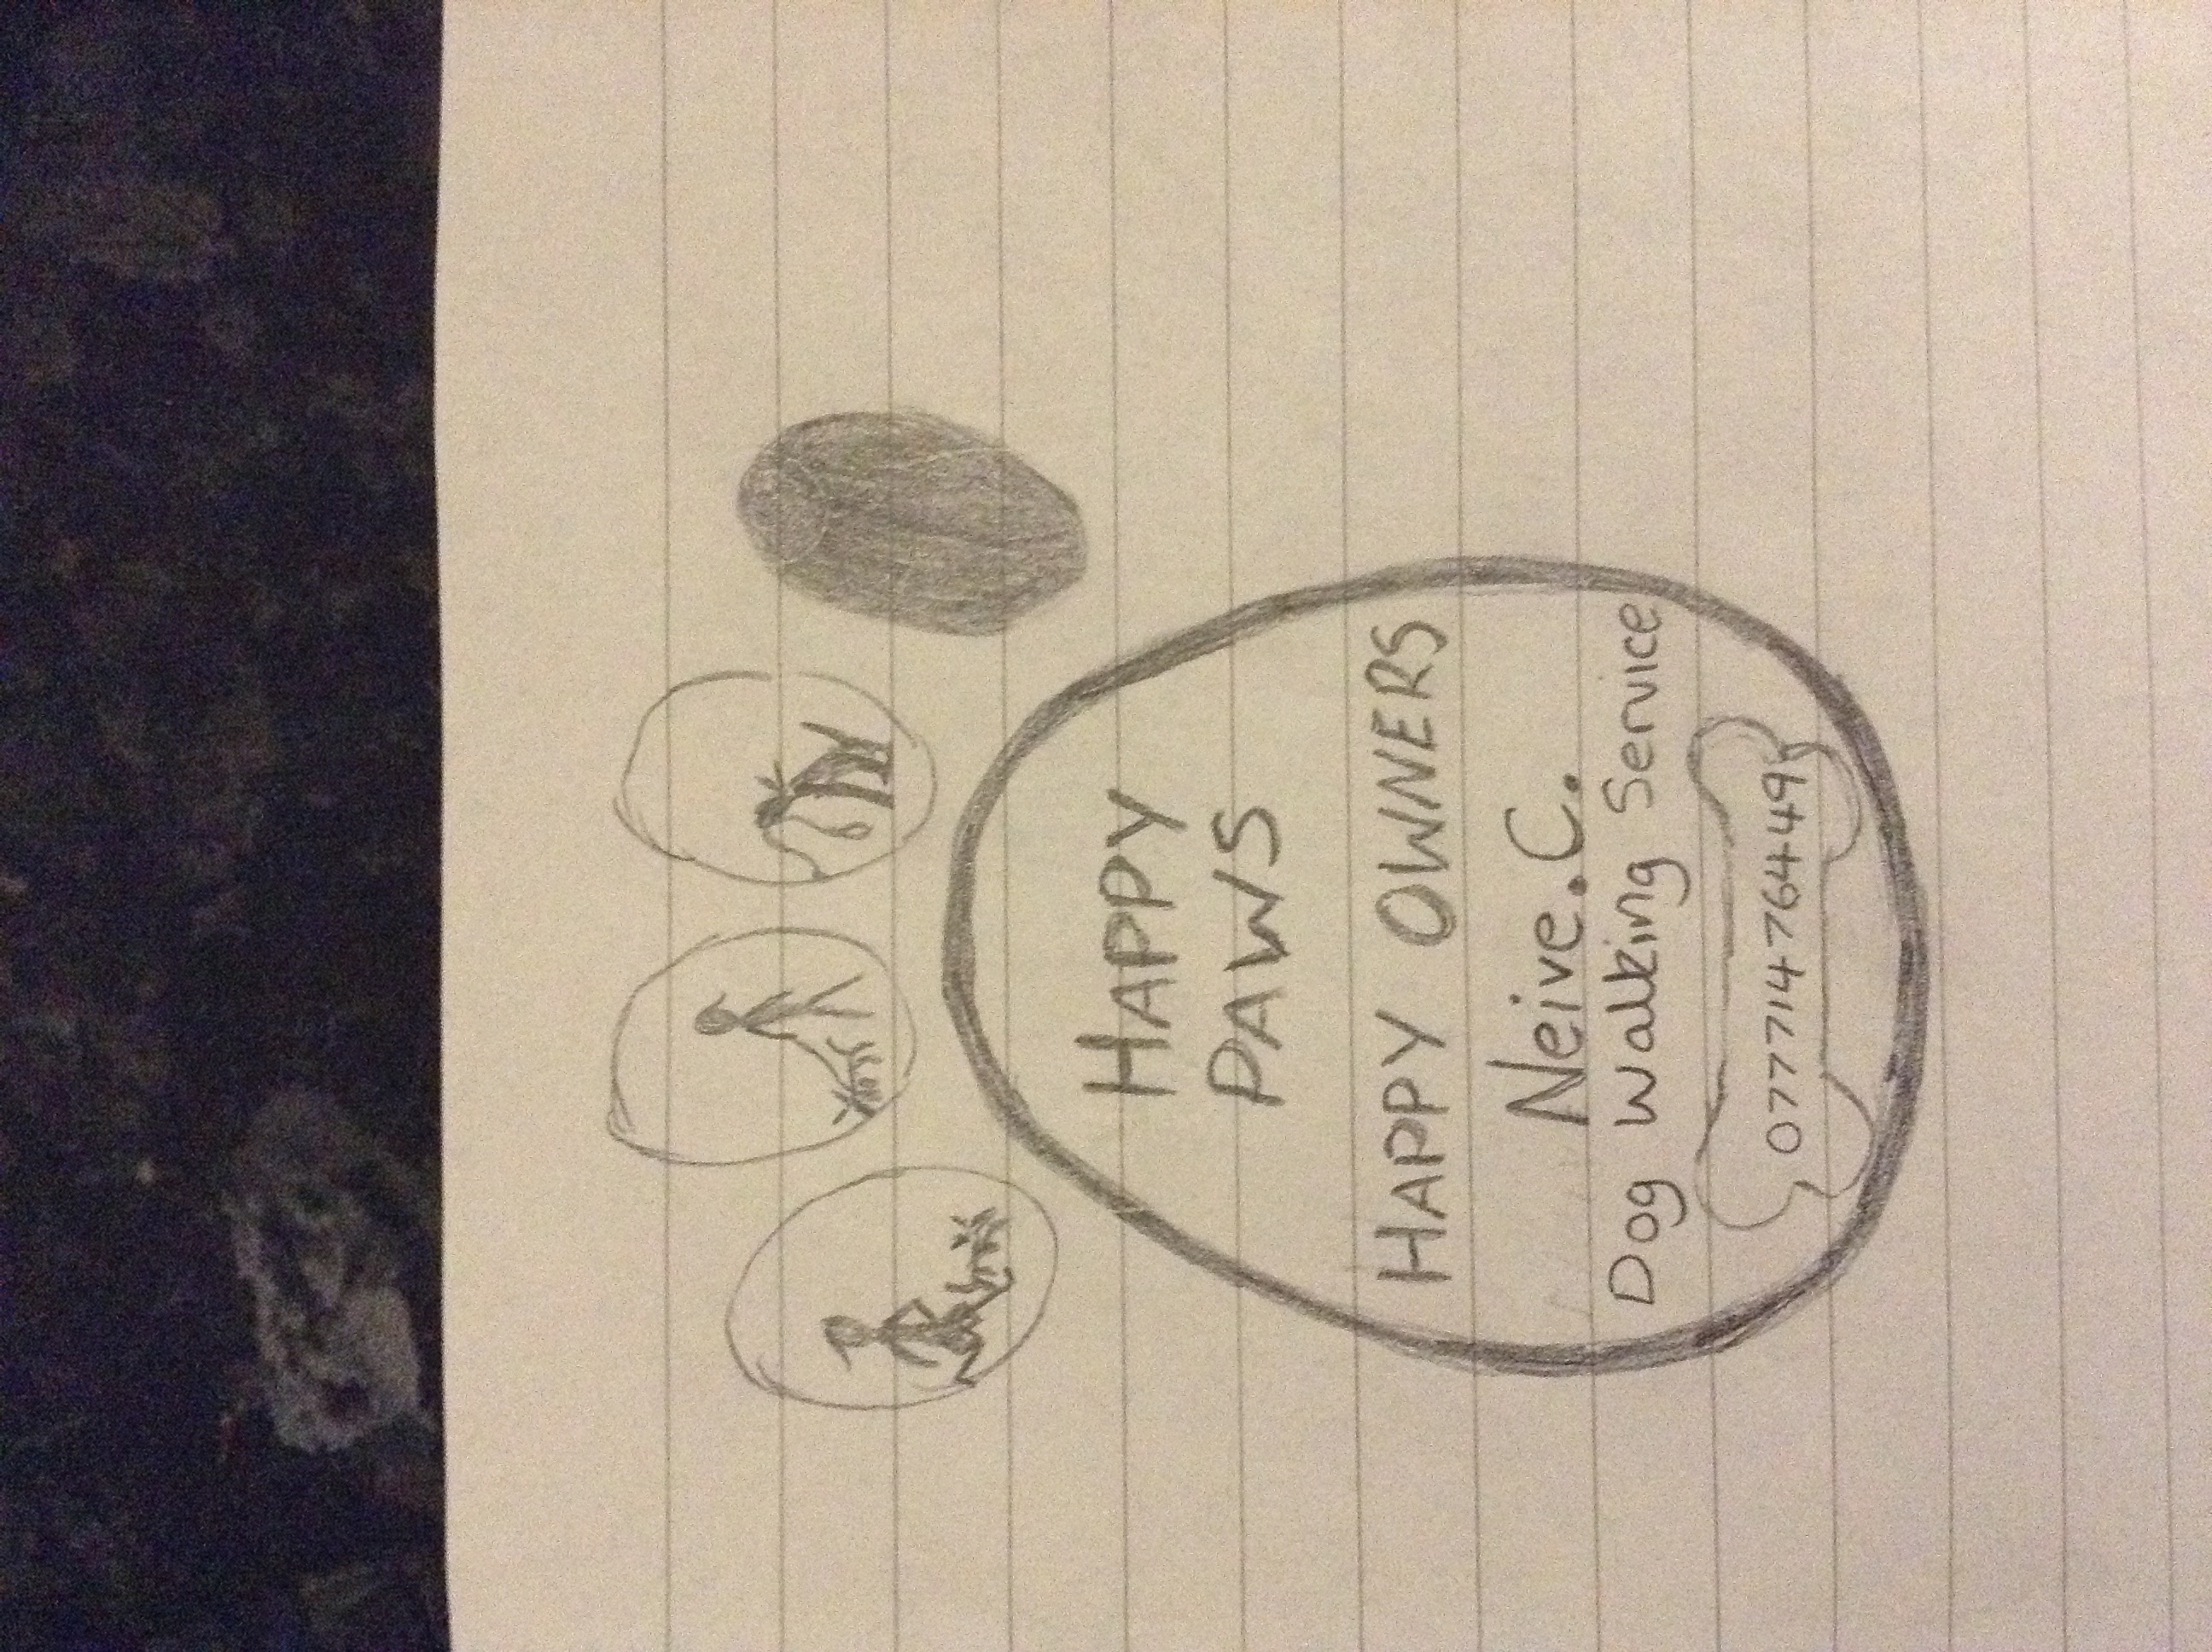 HAPPY
PAWS
HAPPY OWNERS
Neive.C.
Dog Walking Service
07771476449